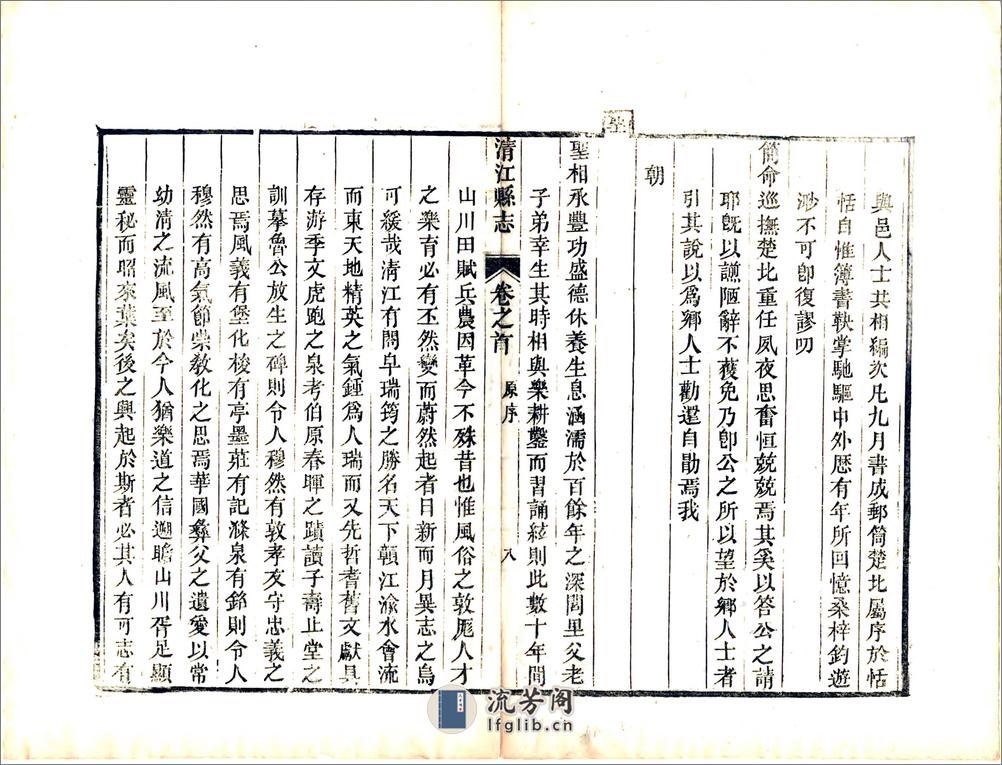 與邑人士共相編次凡九月書成郵筒楚北屬序於恬
恬自惟簿書鞅掌馳驅中外歷有年所囘憶桑梓釣遊
渺不可卽復謬叨
簡命巡撫楚北重任夙夜思奮恒兢兢焉其奚以答公之請
耶旣以譾陋辭不獲免乃卽公之所以望於鄉人士者
引其說以爲鄉人士勸還自勖焉我
朝
聖聖相承豐功盛德休養生息涵濡於百餘年之深閭里父老
子弟幸生其時相與樂耕鑿而習誦絃則此數十年間
清江縣志 卷之首 原序 八
山川田賦兵農因革今不殊昔也惟風俗之敦厖人才
之樂育必有丕然變而蔚然起者日新而月異志之烏
可緩哉清江有閤皁瑞筠之勝名天下贛江渝水會流
而東天地精英之氣鍾爲人瑞而又先哲耆舊文獻具
存游季文虎跑之泉考伯原春暉之蹟讀子壽止堂之
訓摹魯公放生之碑則令人穆然有敦孝友守忠義之
思焉風義有堡化梭有亭墨莊有記滌泉有銘則令人
穆然有高氣節崇敎化之思焉華國彝父之遺愛以常
幼清之流風至於今人猶樂道之信遡瞻山川胥足顯
靈秘而昭來葉矣後之興起於斯者必其人有可志有
流芳阁
lfglib.cn